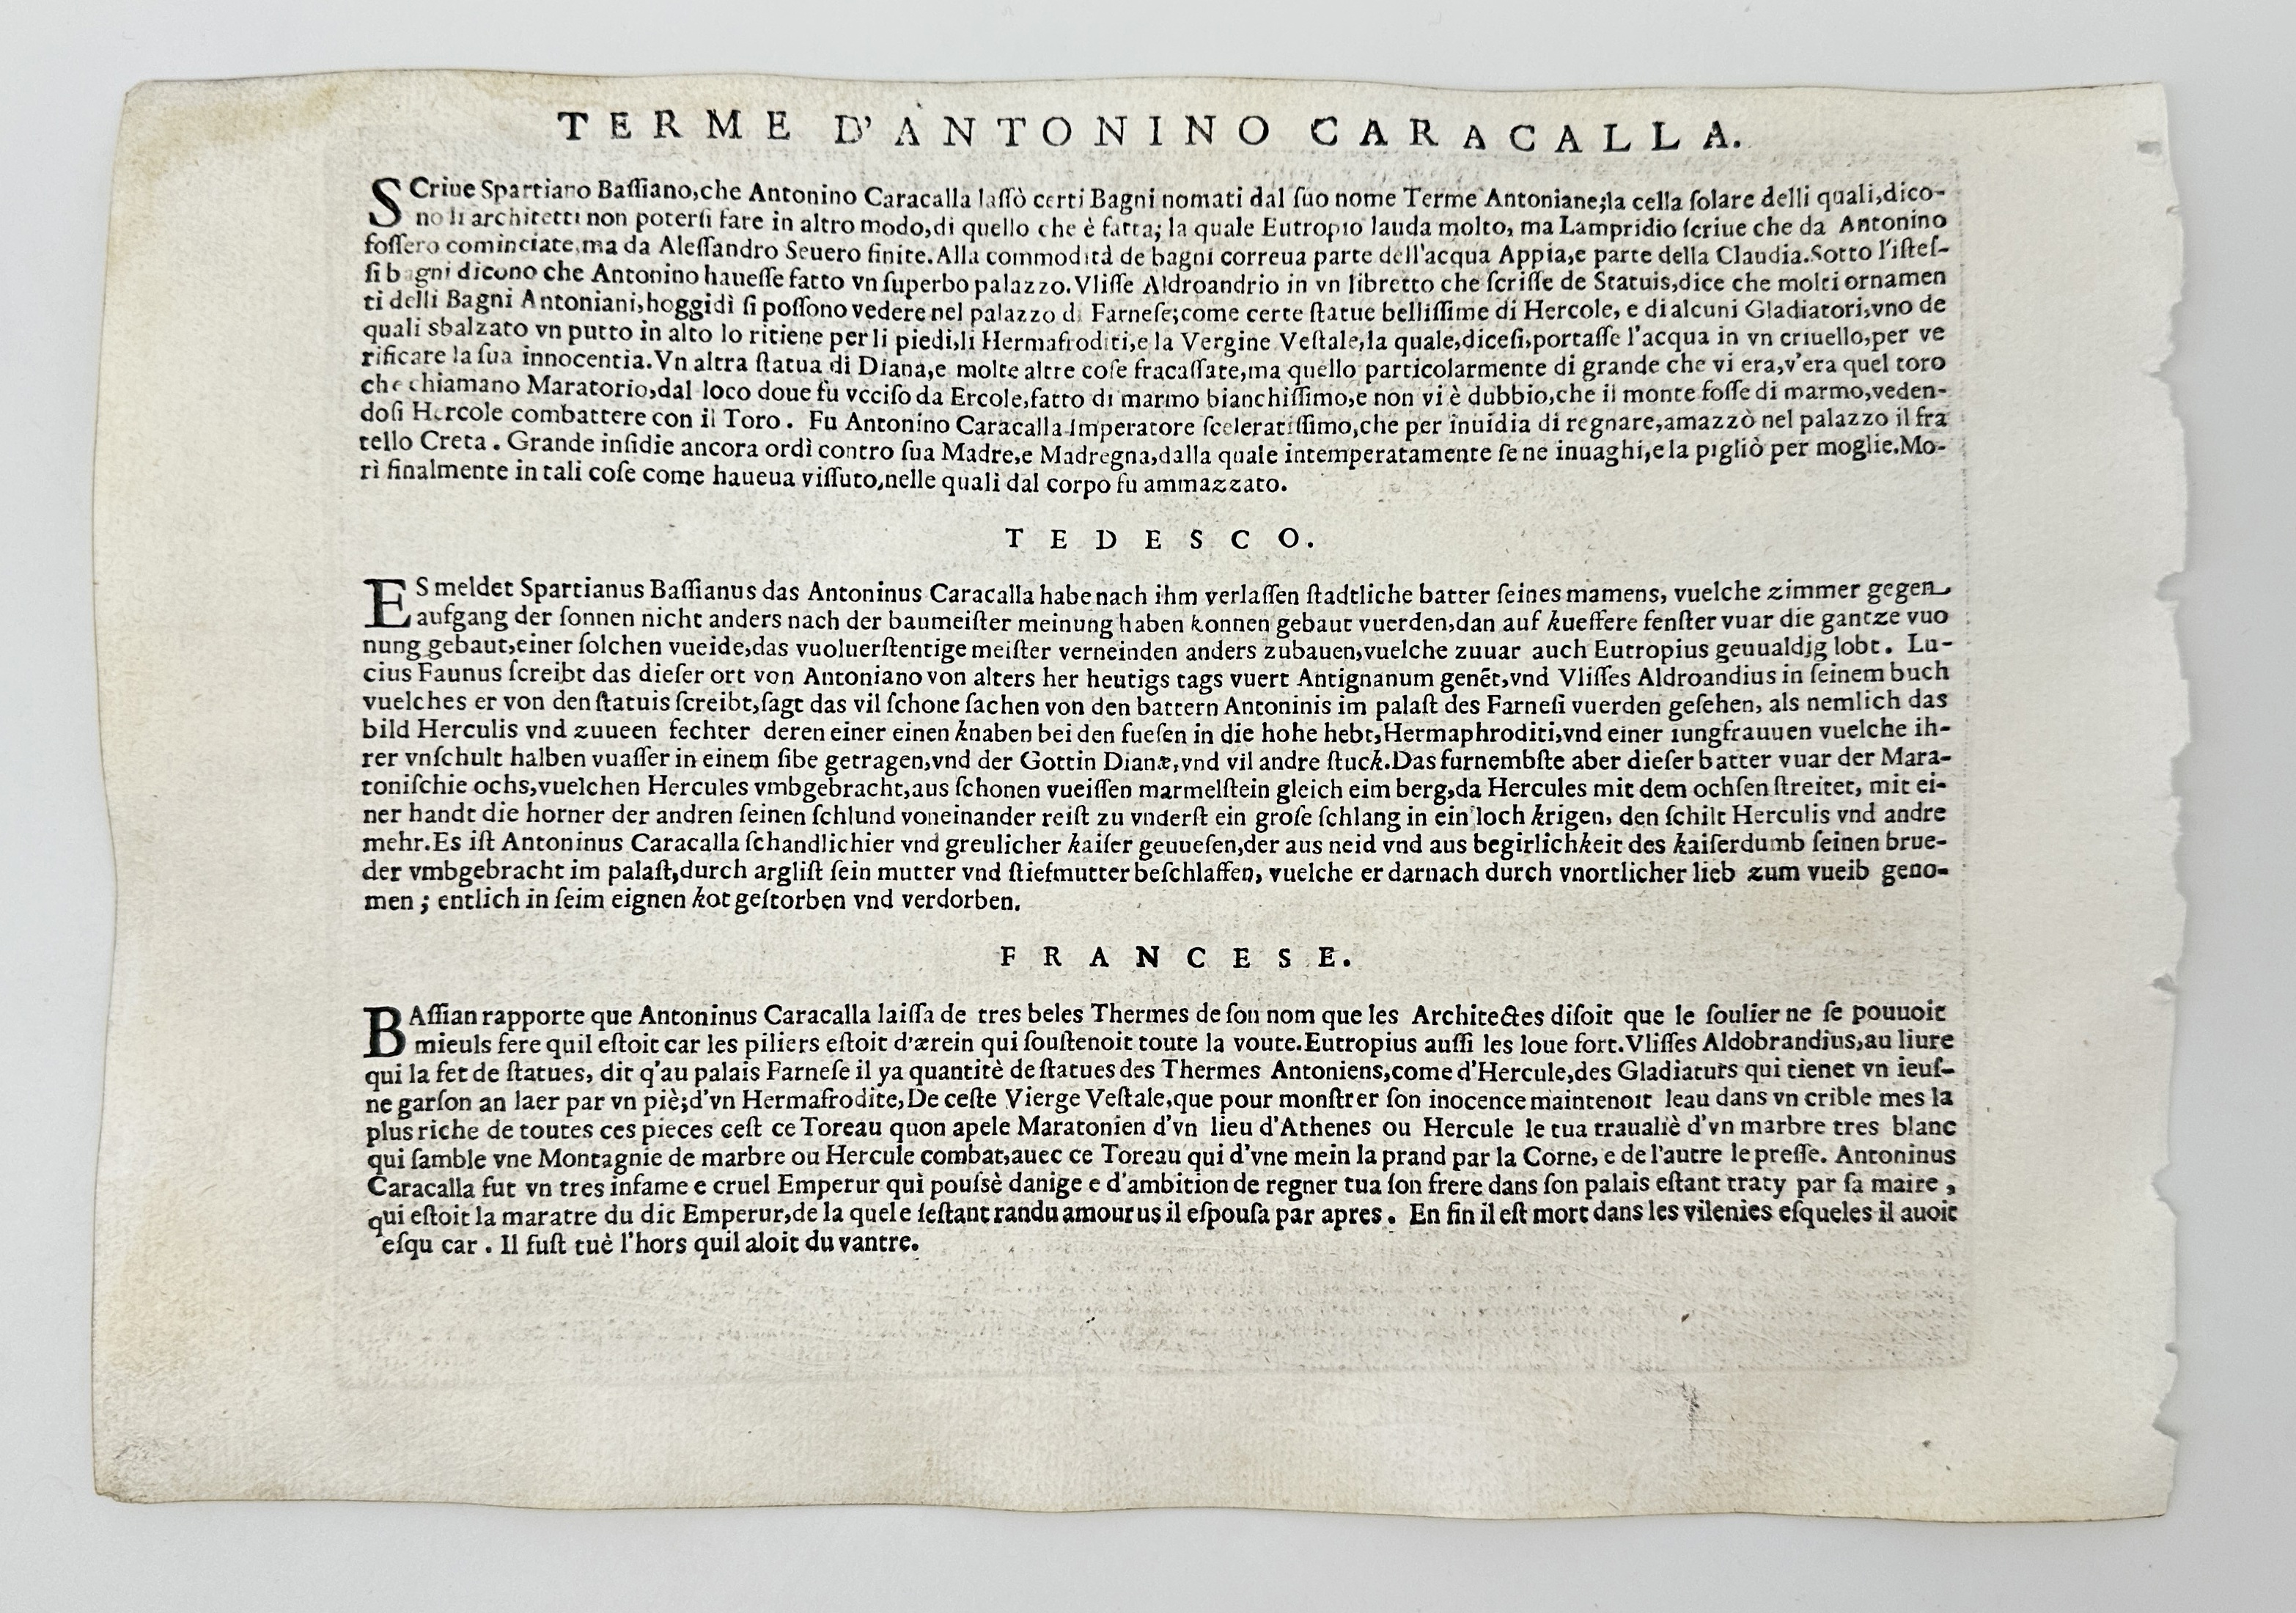 TERME D'ANTONINO CARACALLA.
SCriue Spartiano Baſſiano,che Antonino Caracalla laſſò certi Bagni nomati dal ſuo nome Terme Antoniane;la cella ſolare delli quali,dico-
no li architetti non poterſi fare in altro modo,di quello che è fatta; la quale Eutropio lauda molto, ma Lampridio ſcriue che da Antonino
foſſero cominciate,ma da Aleſſandro Seuero finite.Alla commodità de bagni correua parte dell'acqua Appia,e parte della Claudia.Sotto l'iſteſ-
ſi bagni dicono che Antonino haueſſe fatto vn ſuperbo palazzo.Vliſſe Aldroandrio in vn libretto che ſcriſſe de Statuis,dice che molti ornamen
ti delli Bagni Antoniani,hoggidì ſi poſſono vedere nel palazzo di Farneſe;come certe ſtatue belliſſime di Hercole, e di alcuni Gladiatori,vno de
quali sbalzato vn putto in alto lo ritiene per li piedi,li Hermafroditi,e la Vergine Veſtale,la quale,diceſi,portaſſe l'acqua in vn criuello,per ve
rificare la ſua innocentia.Vn altra ſtatua di Diana,e molte altre coſe fracaſſate,ma quello particolarmente di grande che vi era,v'era quel toro
che chiamano Maratorio,dal loco doue fù vcciſo da Ercole,fatto di marmo bianchiſſimo,e non vi è dubbio,che il monte foſſe di marmo,veden-
doſi Hercole combattere con il Toro. Fu Antonino Caracalla Imperatore ſceleratiſſimo,che per inuidia di regnare,amazzò nel palazzo il fra
tello Creta. Grande inſidie ancora ordì contro ſua Madre,e Madregna,dalla quale intemperatamente ſe ne inuaghi,e la pigliò per moglie.Mo-
rì finalmente in tali coſe come haueua viſſuto,nelle quali dal corpo fu ammazzato.
TEDESCO.
ES meldet Spartianus Baſſianus das Antoninus Caracalla habe nach ihm verlaſſen ſtadtliche batter ſeines mamens, vuelche zimmer gegen
aufgang der ſonnen nicht anders nach der baumeiſter meinung haben konnen gebaut vuerden,dan auf kueffere fenſter vuar die gantze vuo
nung gebaut,einer ſolchen vueide,das vuoluerſtentige meiſter verneinden anders zubauen,vuelche zuuar auch Eutropius geuualdig lobt. Lu-
cius Faunus ſcreibt das dieſer ort von Antoniano von alters her heutigs tags vuert Antignanum genēt,vnd Vliſſes Aldroandius in ſeinem buch
vuelches er von den ſtatuis ſcreibt,ſagt das vil ſchone ſachen von den battern Antoninis im palaſt des Farneſi vuerden geſehen, als nemlich das
bild Herculis vnd zuueen fechter deren einer einen knaben bei den fueſen in die hohe hebt,Hermaphroditi,vnd einer iungfrauuen vuelche ih-
rer vnſchult halben vuaſſer in einem ſibe getragen,vnd der Gottin Dianæ,vnd vil andre ſtuck.Das furnembſte aber dieſer batter vuar der Mara-
toniſchie ochs,vuelchen Hercules vmbgebracht,aus ſchonen vueiſſen marmelſtein gleich eim berg,da Hercules mit dem ochſen ſtreitet, mit ei-
ner handt die horner der andren ſeinen ſchlund voneinander reiſt zu vnderſt ein groſe ſchlang in ein loch krigen, den ſchilt Herculis vnd andre
mehr.Es iſt Antoninus Caracalla ſchandlichier vnd greulicher kaiſer geuueſen,der aus neid vnd aus begirlichkeit des kaiſerdumb ſeinen brue-
der vmbgebracht im palaſt,durch argliſt ſein mutter vnd ſtiefmutter beſchlaffen, vuelche er darnach durch vnortlicher lieb zum vueib geno-
men ; entlich in ſeim eignen kot geſtorben vnd verdorben.
FRANCESE.
BAſſian rapporte que Antoninus Caracalla laiſſa de tres beles Thermes de ſon nom que les Architectes diſoit que le ſoulier ne ſe pouuoit
mieuls fere quil eſtoit car les piliers eſtoit d'ærein qui ſouſtenoit toute la voute.Eutropius auſſi les loue fort.Vliſſes Aldobrandius,au liure
qui la fet de ſtatues, dit q'au palais Farneſe il ya quantitè de ſtatues des Thermes Antoniens,come d'Hercule,des Gladiaturs qui tienet vn ieuſ-
ne garſon an laer par vn piè;d'vn Hermafrodite,De ceſte Vierge Veſtale,que pour monſtrer ſon inocence maintenoit leau dans vn crible mes la
plus riche de toutes ces pieces ceſt ce Toreau quon apele Maratonien d'vn lieu d'Athenes ou Hercule le tua traualiè d'vn marbre tres blanc
qui ſamble vne Montagnie de marbre ou Hercule combat,auec ce Toreau qui d'vne mein la prand par la Corne, e de l'autre le preſſe. Antoninus
Caracalla fut vn tres infame e cruel Emperur qui pouſsè danige e d'ambition de regner tua ſon frere dans ſon palais eſtant traty par ſa maire ,
qui eſtoit la maratre du dit Emperur,de la quele ſeſtant randu amourus il eſpouſa par apres. En fin il eſt mort dans les vilenies eſqueles il auoit
eſqu car . Il fuſt tuè l'hors quil aloit du vantre.